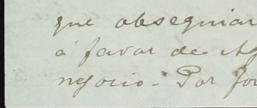 que obsequiar
á favor de Ag
negocio. Por for